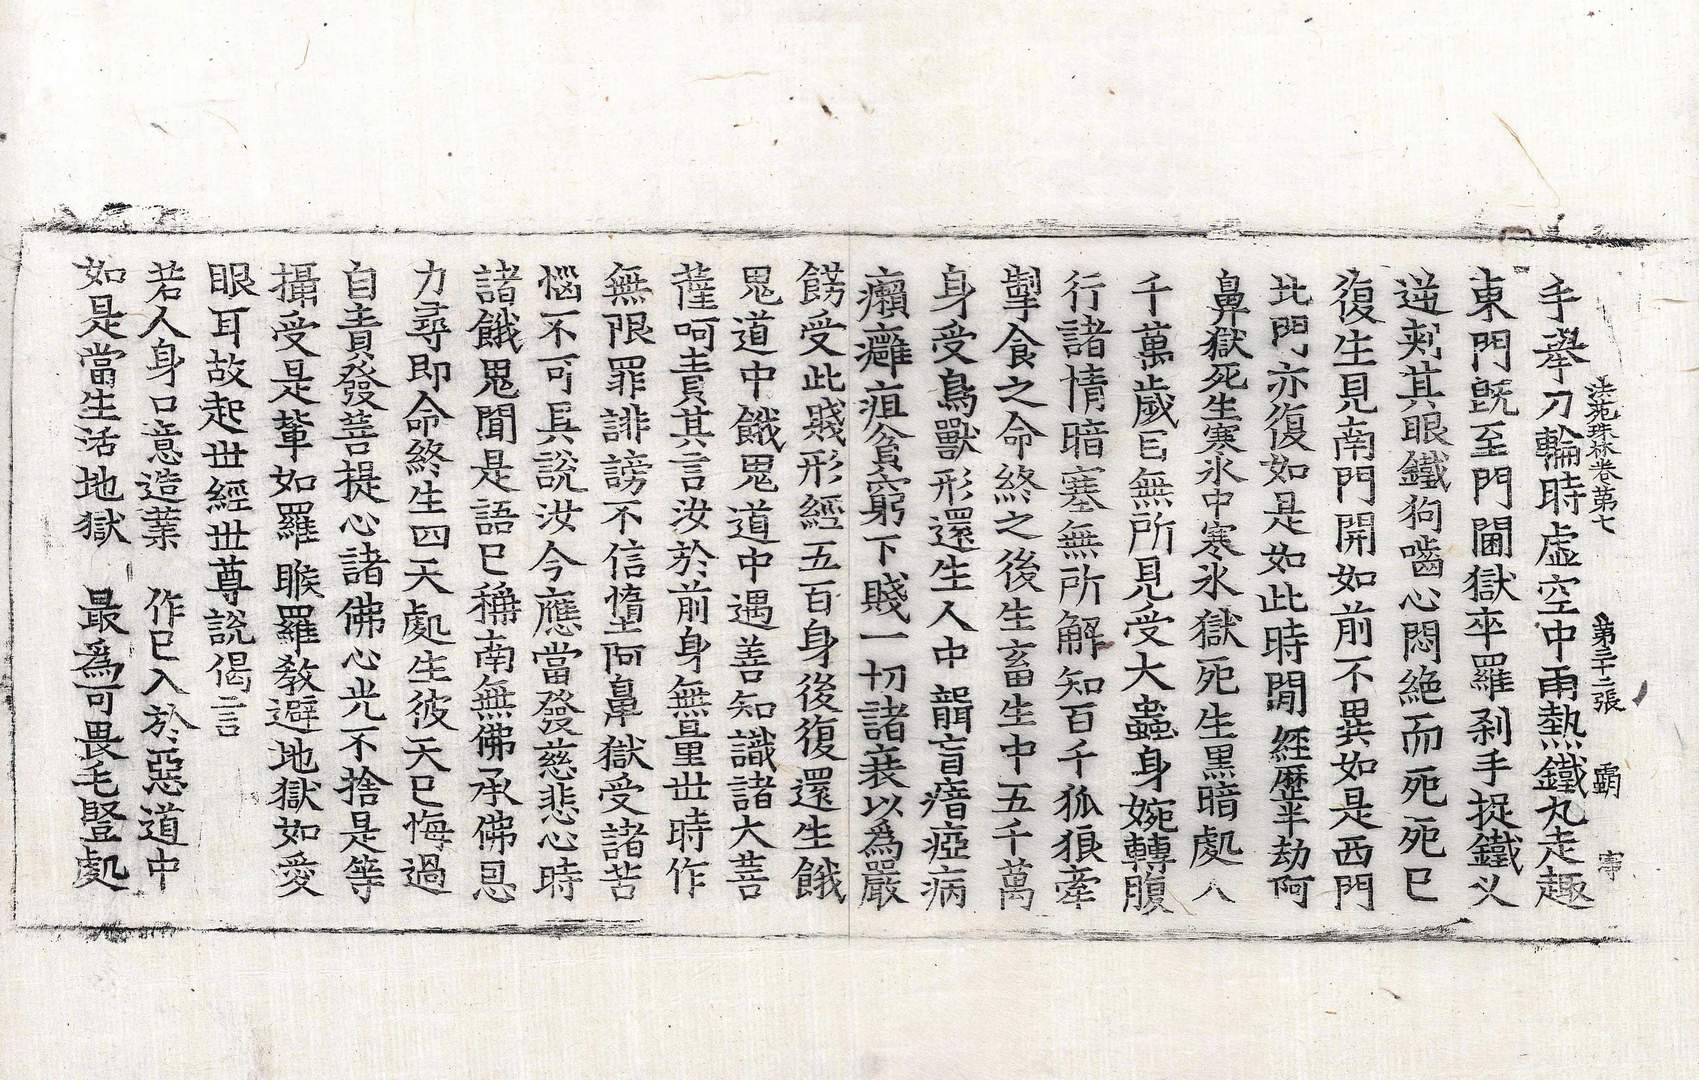 法苑珠林卷第七 第三十二張 霸
手舉刀輪時虛空中雨熱鐵丸走趣
東門旣至門閫獄卒羅刹手捉鐵乂
逆刾其眼鐵狗嚙心悶絶而死死已
復生見南門開如前不異如是西門
北門亦復如是如此時閒經歷半劫阿
鼻獄死生寒氷中寒氷獄死生黑暗處八
千萬歲目無所見受大蟲身婉轉腹
行諸情暗塞無所解知百千狐狼牽
掣食之命終之後生畜生中五千萬
身受鳥獸形還生人中聾盲瘖瘂病
癩癰疽貧窮下賤一切諸衰以爲嚴
餝受此賤形經五百身後復還生餓
鬼道中餓鬼道中遇善知識諸大菩
薩呵責其言汝於前身無量世時作
無限罪誹謗不信墮阿鼻獄受諸苦
惱不可具說汝今應當發慈悲心時
諸餓鬼聞是語已稱南無佛承佛恩
力尋即命終生四天處生彼天已悔過
自責發菩提心諸佛心光不捨是等
攝受是輩如羅睺羅敎避地獄如愛
眼耳故起世經世尊說偈言
若人身口意造業 作已入於惡道中
如是當生活地獄 最爲可畏毛豎處